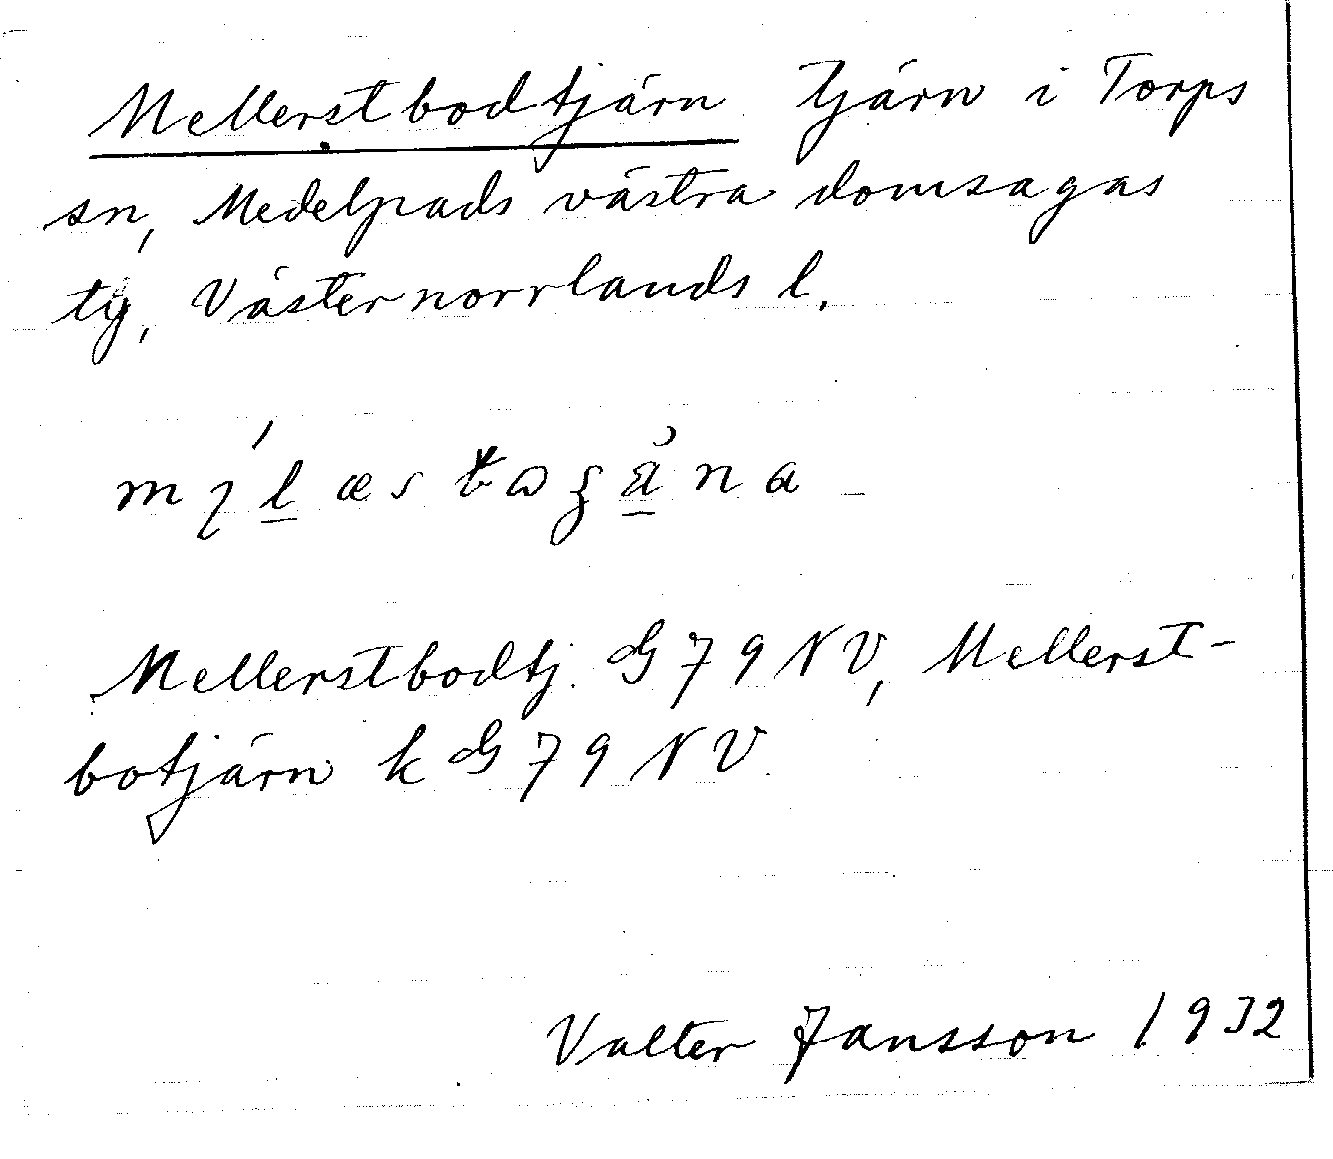 Mellerstbodtjärn Tjärn i Torps
sn, Medelpads västra domsagas
tg, Västernorrlands l.
Mellerstbodtj. G 79 NV, Mellerst-
botjärn k G 79 NV.
Valter Jansson 1932